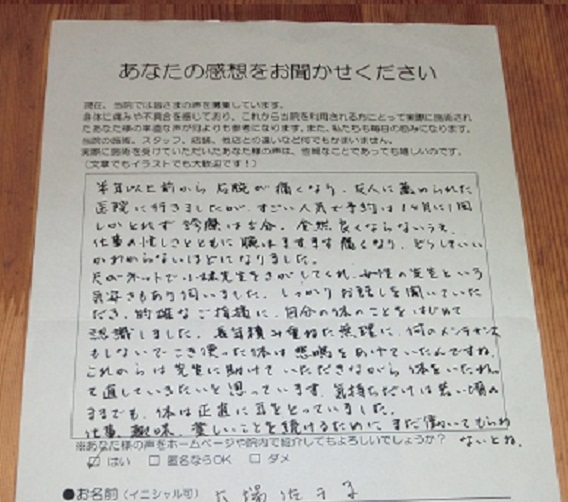 あなたの感想をお聞かせください
現在、当院では皆さまの声を募集しています。
身体に痛みや不具合を感じており、これから当院を利用される方にとって実際に施術され
たあなた様の率直な声が何よりも参考になります。また、私たちも毎日の励みになります。
当院の施術、スタッフ、店舗、他店との違いなど何でもかまいません。
実際に施術を受けていただいたあなた様の声は、些細なことであっても嬉しいのです。
(文章でもイラストでも大歓迎です!)
半年以上前から右腕が痛くなり、友人に薦められた
医院に行きましたが、すごい人気で予約は1ヶ月に1回
しかとれず 診療は五分。全然良くならないうえ、
仕事の忙しさとともに腕はますます痛くなり、どうしていい
かわからないほどになりました。
ネットで小林先生をさがしてくれ、女性の先生という
気安さもあり伺いました。しっかりお話しを聞いていた
だき、的確なご指摘に、自分の体のことをはじめて
認識しました。長年積み重ねた無理に、何のメンテナンス
もしないでこき使った体は悲鳴をあげていたんですね。
これからは先生に助けていただきながら体をいたわっ
て直していきたいと思っています。気持ちだけは若い頃の
ままでも、体は正直に年をとっていました。
仕事、趣味、楽しいことを続けるために まだ働いてもらわ
ないとね。
※あなた様の声をホームページや院内で紹介してもよろしいでしょうか?
☑ はい □ 匿名ならOK □ ダメ
●お名前(イニシャル可)